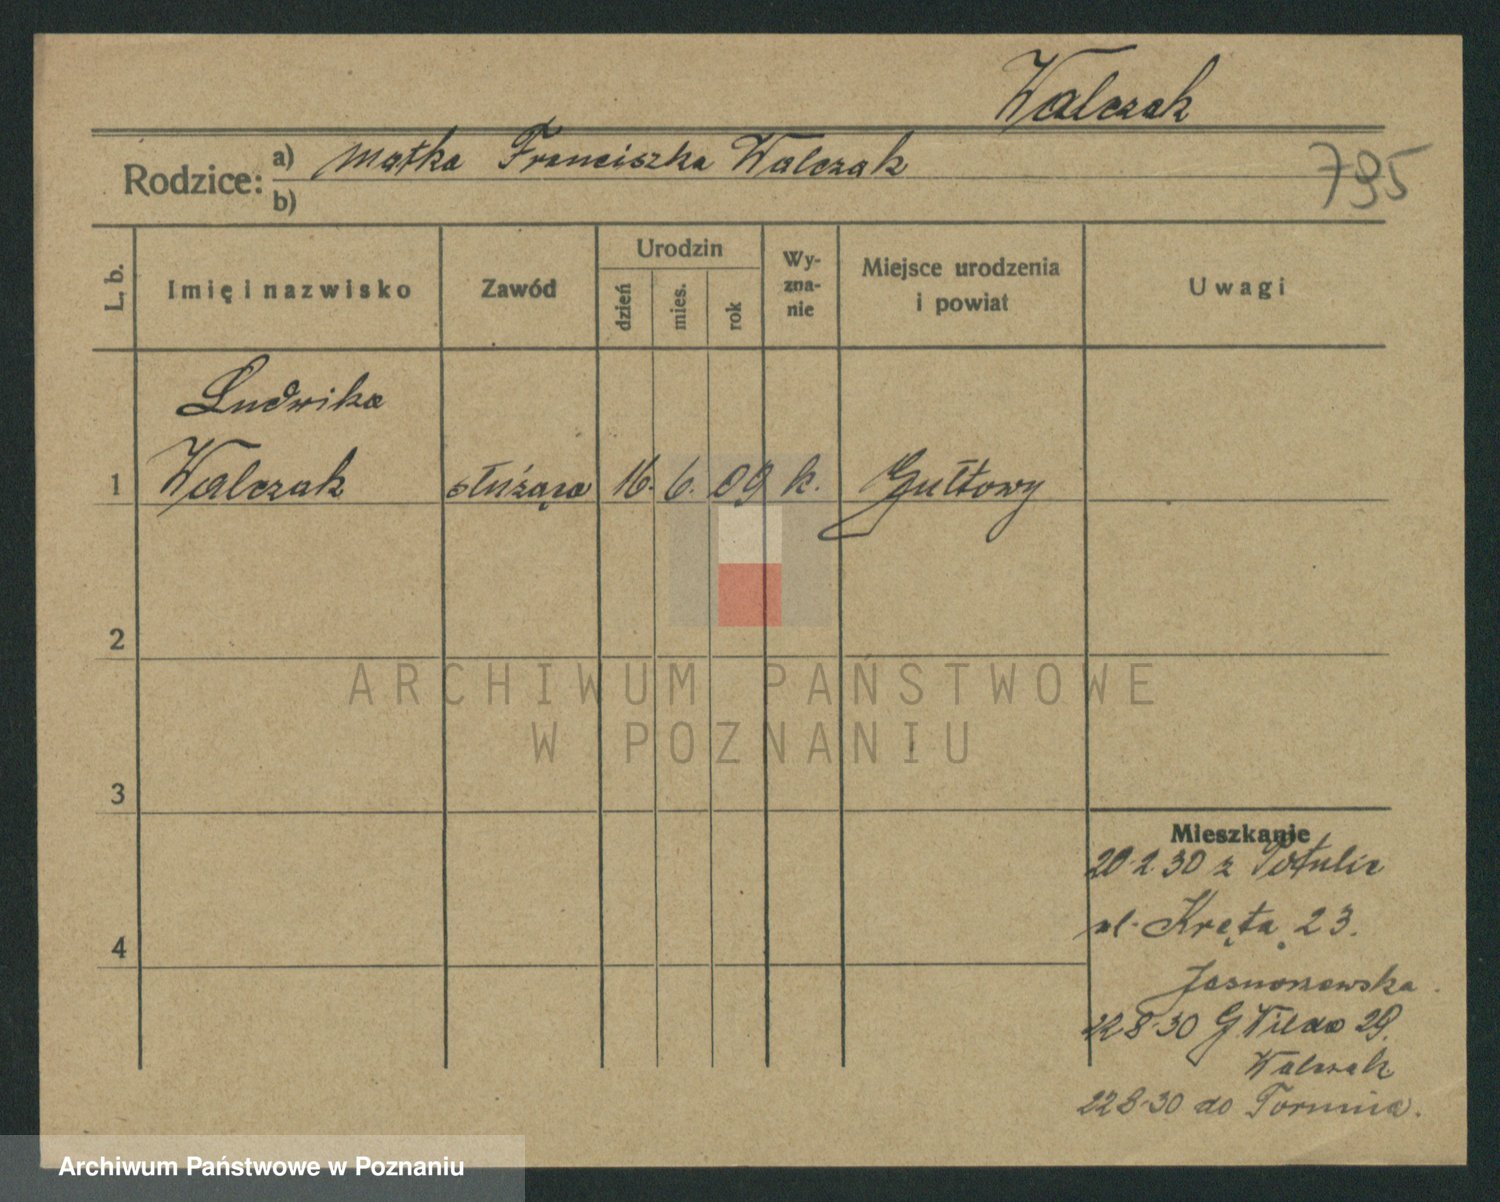 Walczak
Rodzice:
a) Matka Franciszka Walczak
b)
795
L. b.
Imię i nazwisko
Zawód
Urodzin
dzień
mies.
rok
Wy-
zna-
nie
Miejsce urodzenia
i powiat
Uwagi
Ludwika
1 Walczak służąca 16. 6. 09 k. Gułtowy
2
3
4
Mieszkanie
20·2·30 z Potulic
ul. Kręta 23.
22·8·30 G. Wilda 29.
Walczak
22·8·30 do Torunia.
ARCHIWUM PAŃSTWOWE
W POZNANIU
Archiwum Państwowe w Poznaniu